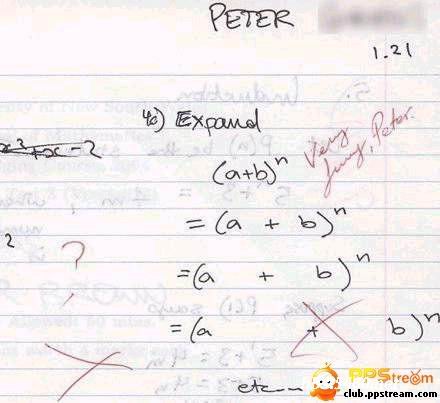 PETER
1.21
4c) Expand
(a+b)ⁿ
Very
funny, Peter.
= (a + b)ⁿ
2
?
= (a + b)ⁿ
= (a + b)ⁿ
etc...
PPStream
club.ppstream.com